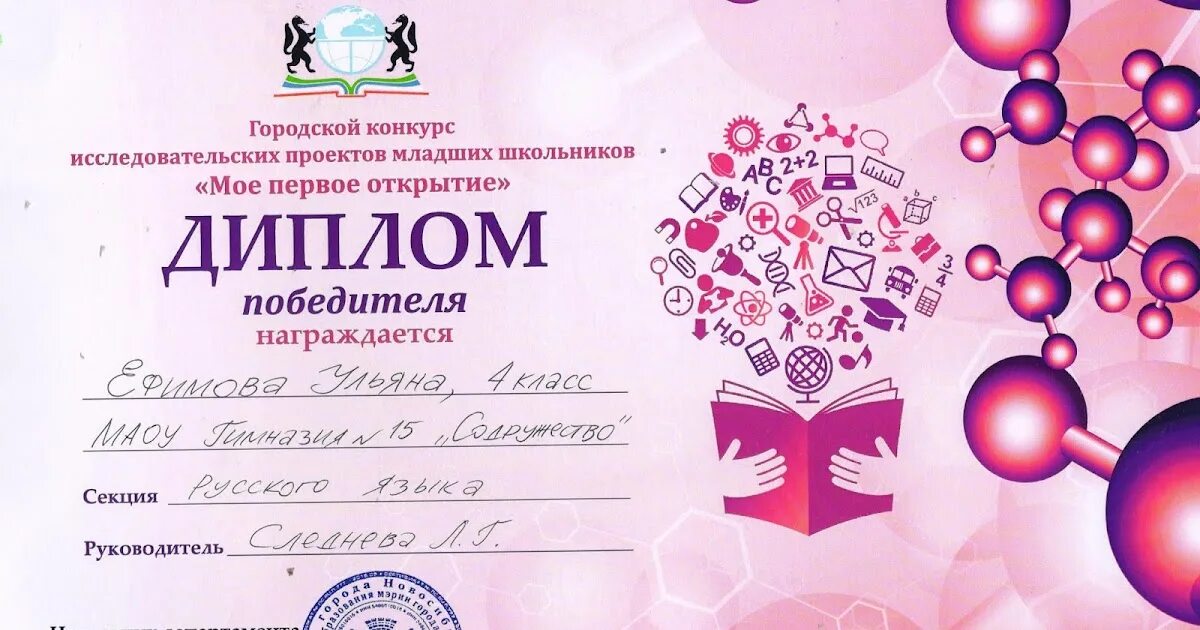 Городской конкурс
исследовательских проектов младших школьников
«Мое первое открытие»
ДИПЛОМ
победителя
награждается
Ефимова Ульяна, 4 класс
МАОУ Гимназия № 15 „Содружество"
Секция Русского языка
Руководитель Следнева Л.Г.
города Новосиб
образования мэрии города
ABC 2+2
√123
a b c
3/4
H₂O